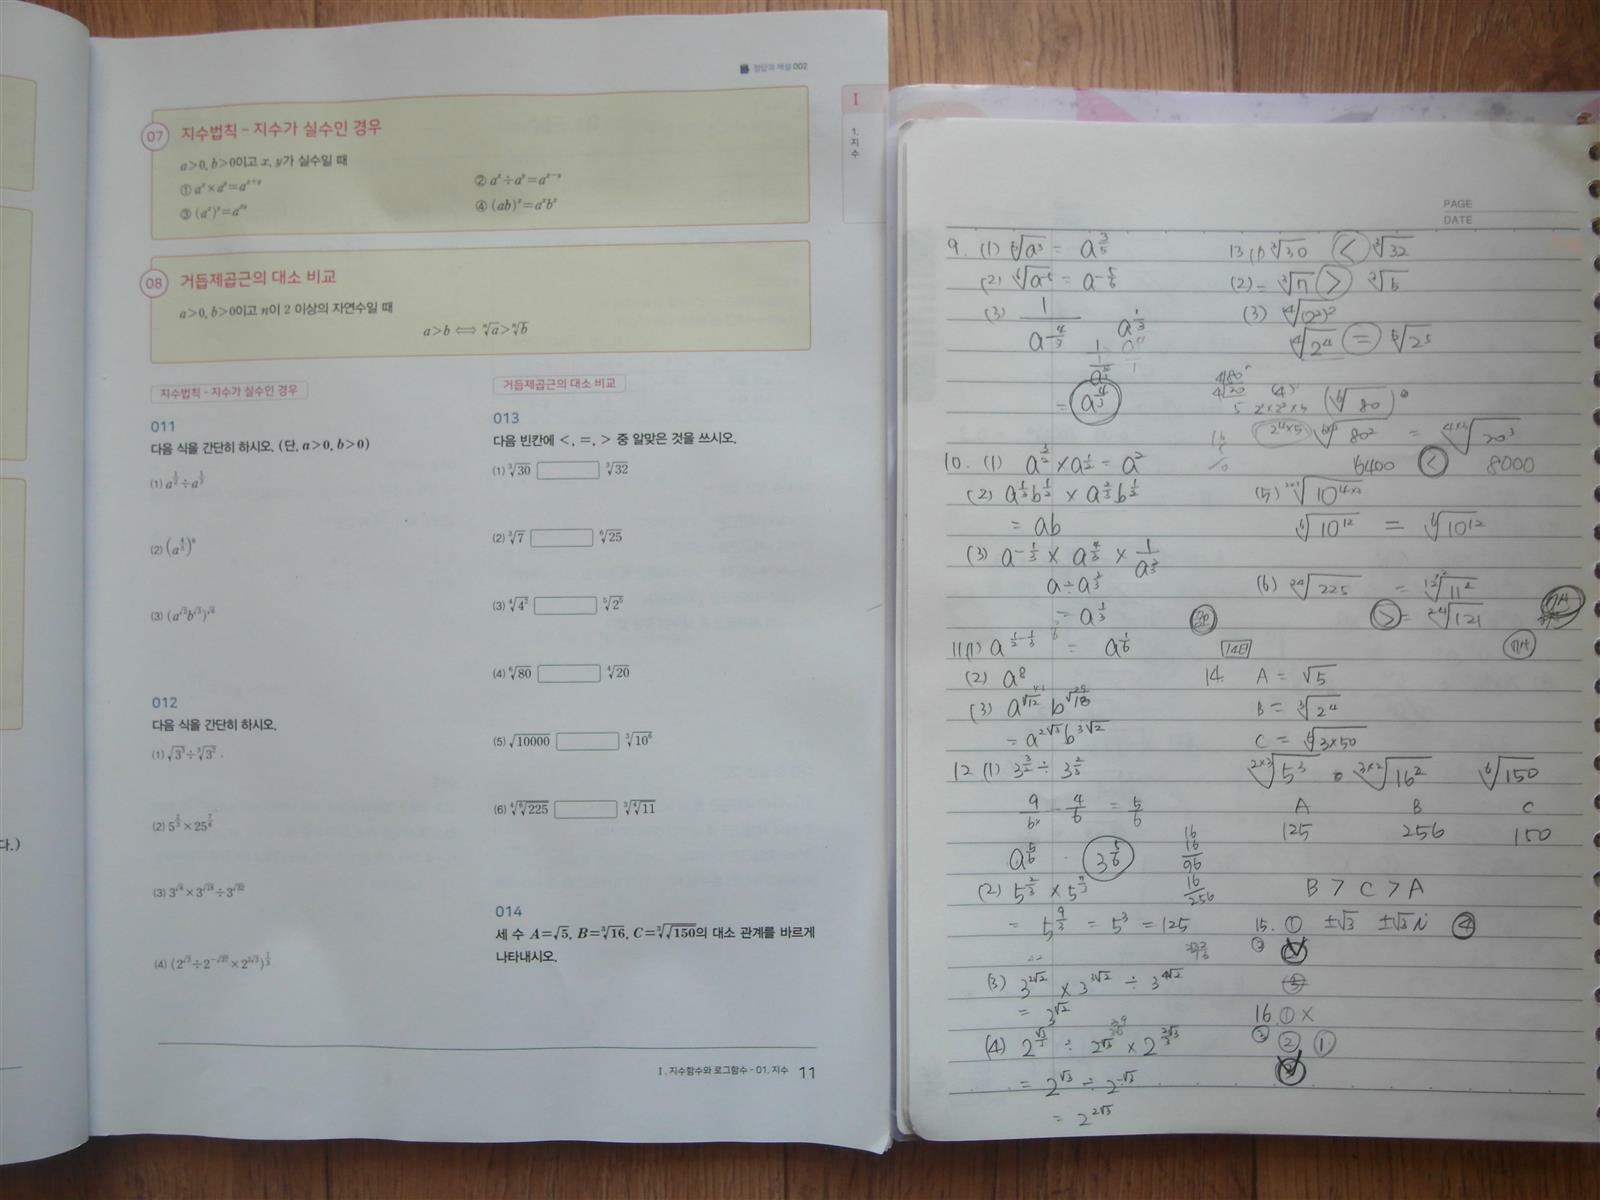 정답과 해설 002
07 지수법칙 - 지수가 실수인 경우
a>0, b>0이고 x, y가 실수일 때
① aˣ×aʸ=aˣ⁺ʸ ② aˣ÷aʸ=aˣ⁻ʸ
③ (aˣ)ʸ=aˣʸ ④ (ab)ˣ=aˣbˣ
08 거듭제곱근의 대소 비교
a>0, b>0이고 n이 2 이상의 자연수일 때
a>b ⟺ ⁿ√a>ⁿ√b
I
1. 지수
지수법칙 - 지수가 실수인 경우
011
다음 식을 간단히 하시오. (단, a>0, b>0)
(1)
(2)
(3)
012
다음 식을 간단히 하시오.
(1) √3³÷³√3²
(2)
(3) 3^√8×3^√18÷3^√32
(4)
거듭제곱근의 대소 비교
013
다음 빈칸에 <, =, > 중 알맞은 것을 쓰시오.
(1) ³√30 ³√32
(2) ³√7 ⁶√25
(3) ⁴√4² ⁵√2⁵
(4) ⁶√80 ⁴√20
(5) √10000 ³√10⁶
(6) ⁴√⁶√225 ³√⁴√11
014
세 수 A=√5, B=³√16, C=³√√150의 대소 관계를 바르게
나타내시오.
I. 지수함수와 로그함수 - 01. 지수 11
다.)
PAGE
DATE
9. (1) ⁵√a³ = a^(3/5)
(2) = a^(-5/6)
(3)
= a^(4/3)
10. (1) a^(3/2) × a^(1/2) = a²
(2) a^(1/3)b^(1/2) × a^(2/3)b^(1/2)
= ab
(3) a^(-1/3) × a^(4/3) × 1/a^(2/3)
a÷a^(2/3)
= a^(1/3)
11 (1) a^(1/2-1/3) = a^(1/6)
(2) a⁸
(3) a^√12 b^√18
= a^(2√3) b^(3√2)
12 (1) 3^(3/2) ÷ 3^(2/3)
9/6 - 4/6 = 5/6
a^(5/6) 3^(5/6)
(2) 5^(2/3) × 5^(7/3)
= 5^(9/3) = 5³ = 125
(3) 3^(2√2) × 3^(3√2) ÷ 3^(4√2)
= 3^√2
(4)
= 2^√3 ÷ 2^(-√3)
= 2^(2√3)
13 (1) ³√30 < ³√32
(2) = ³√7 > ³√5
(3) ⁴√(2²)²
⁴√2⁴ = ⁵√2⁵
⁶√80
80² = 20³
6400 < 8000
(5)
⁶√10¹² = ⁶√10¹²
(6) ²⁴√225 = ¹²ˣ²√11²
> = ²⁴√121
14일
14. A = √5
B = ³√2⁴
C = ⁶√3×50
²ˣ³√5³ ³ˣ²√16² ⁶√150
A B C
125 256 150
16
16
96
16
256
B > C > A
15. ① ±√3 ±√3i ④
③
16. ① X
③ ② ①
③